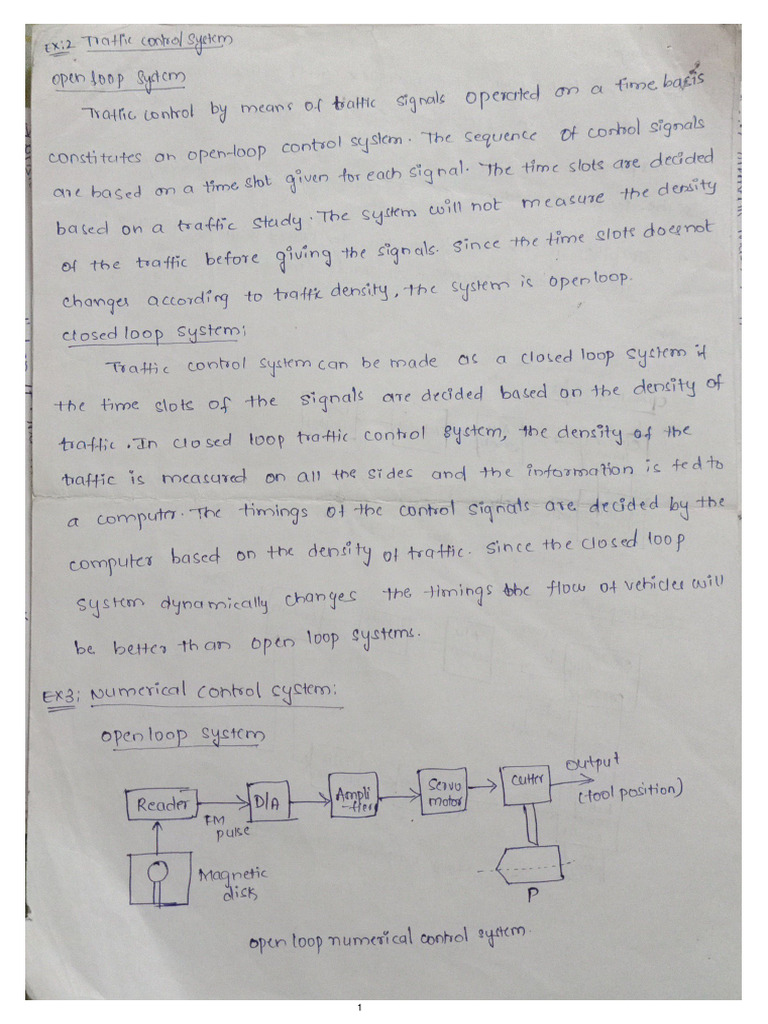 Ex:2 Traffic control system
open loop system
Traffic control by means of traffic signals operated on a time basis
constitutes an open-loop control system. The sequence of control signals
are based on a time slot given for each signal. The time slots are decided
based on a traffic study. The system will not measure the density
of the traffic before giving the signals. Since the time slots doesnot
changes according to traffic density, the system is openloop.
closed loop system:
Traffic control system can be made as a closed loop system if
the time slots of the signals are decided based on the density of
traffic. In closed loop traffic control system, the density of the
traffic is measured on all the sides and the information is fed to
a computer. The timings of the control signals are decided by the
computer based on the density of traffic. Since the closed loop
system dynamically changes the timings the flow of vehicles will
be better than open loop systems.
Ex3: Numerical control system:
open loop system
Reader
FM pulse
D/A
Ampli-fier
Servo motor
Cutter
output
(tool position)
Magnetic disk
P
open loop numerical control system.
1